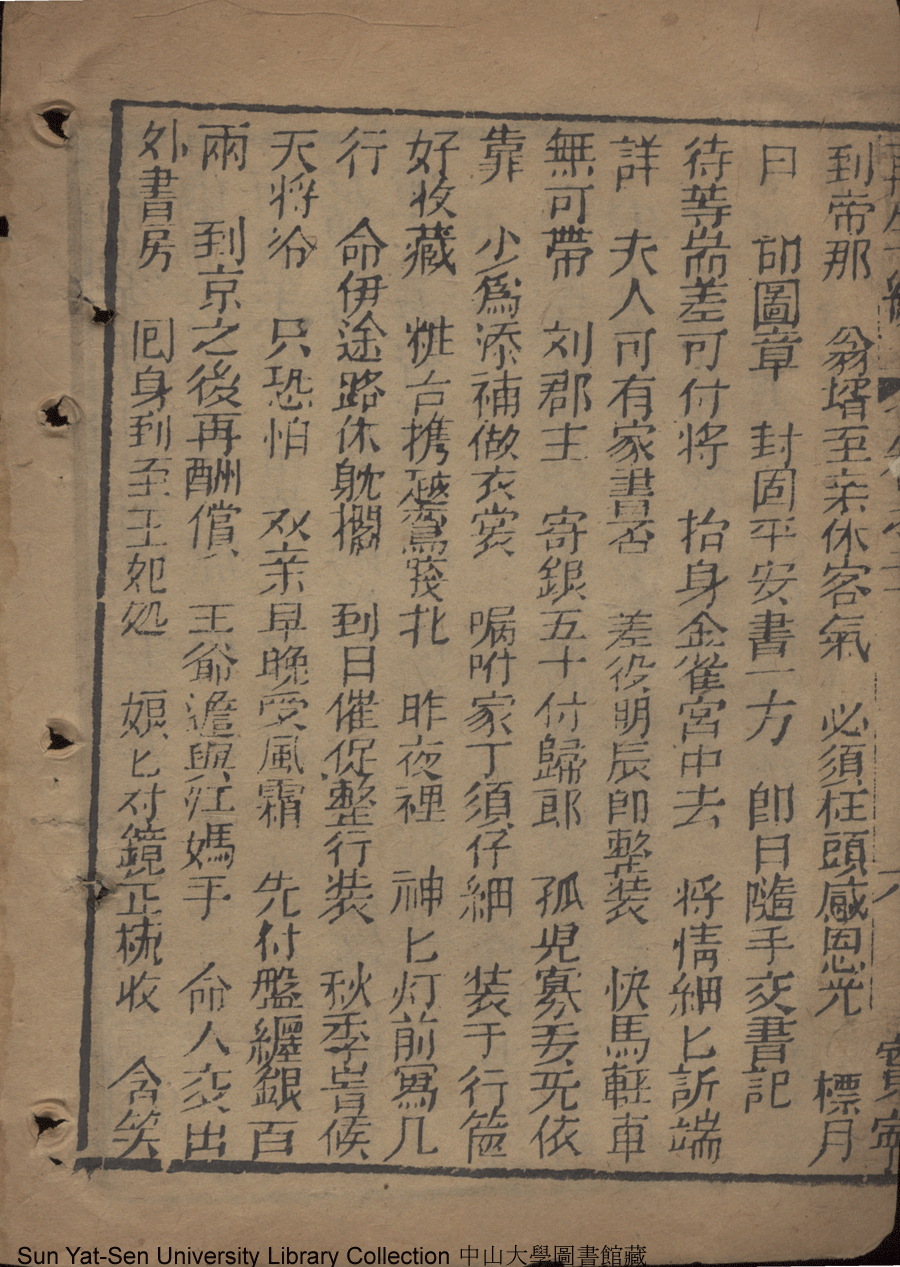 到帝那　翁壻至亲休客氣　必須枉頭感恩光　標月
日　印圖章　封固平安書一方　即日隨手交書記
待等耑差可付将　抬身金雀宮中去　将情細匕訴端
詳　夫人可有家書否　差役明辰即整装　快馬輕車
無可帶　刘郡主　寄銀五十付歸郎　孤児寡妻无依
靠　少為添補做衣裳　嘱咐家丁須仔細　装于行篋
好收藏　粧台携筆　昨夜裡　神匕灯前冩几
行　命伊途路休躭擱　到日催促整行装　秋季時候
天将冷　只恐怕　双亲早晚受風霜　先付盤纏銀百
兩　到京之後再酬償　王爺遞與江媽手　命人交出
外書房　囬身到至王妃処　娘匕对鏡正梳收　含笑
Sun Yat-Sen University Library Collection 中山大學圖書館藏